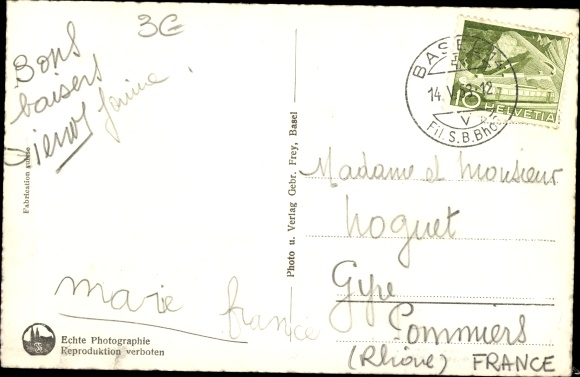 3€
Bons
baisers
Pierrot Janine.
Fabrication suisse
marie france
Echte Photographie
Reproduktion verboten
Photo u. Verlag Gebr. Frey, Basel
BASEL
14.V.53-12
V
Fil.S.B.Bhof
10
HELVETIA
Madame et Monsieur
Noguet
Gype
Pommiers
(Rhône) FRANCE